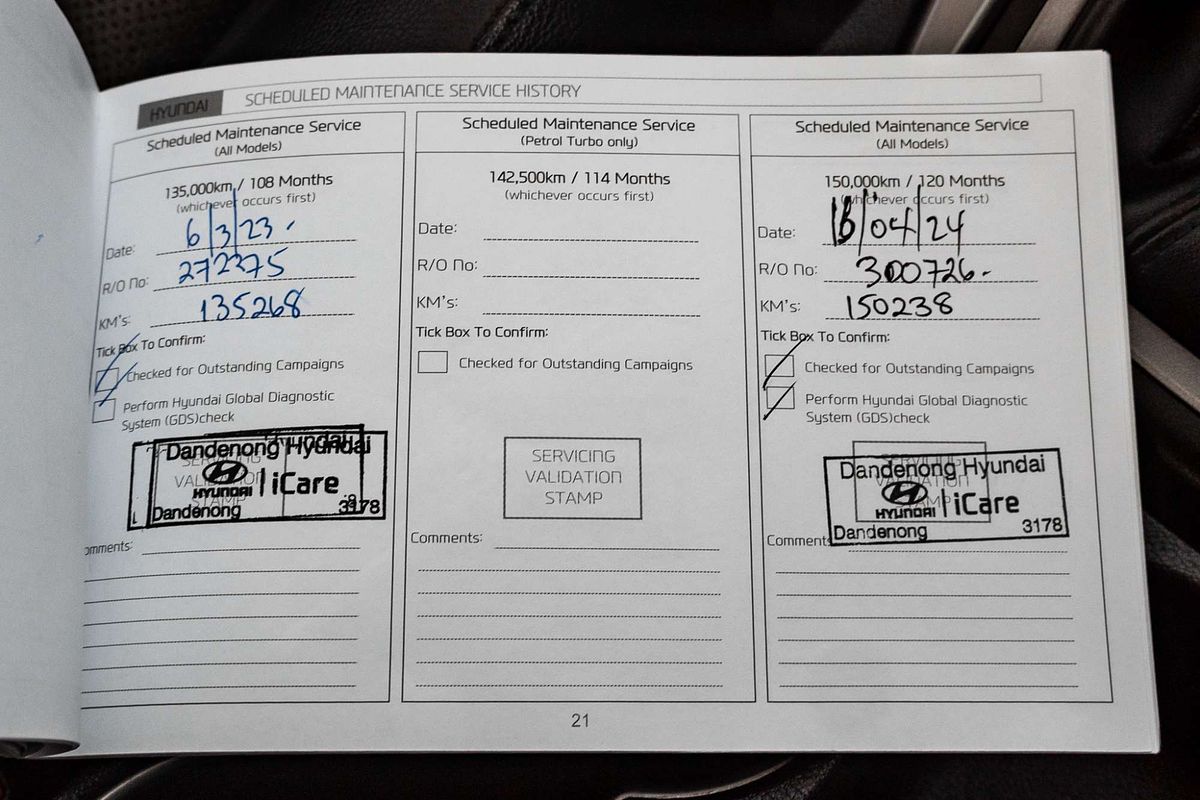 HYUNDAI SCHEDULED MAINTENANCE SERVICE HISTORY
Scheduled Maintenance Service
(All Models)
135,000km / 108 Months
(whichever occurs first)
Date: 6/3/23
R/O No: 272275
KM's: 135268
Tick Box To Confirm:
Checked for Outstanding Campaigns
Perform Hyundai Global Diagnostic
System (GDS)check
SERVICING
VALIDATION
STAMP
Dandenong Hyundai
HYUNDAI | iCare
Dandenong 3178
Comments:
Scheduled Maintenance Service
(Petrol Turbo only)
142,500km / 114 Months
(whichever occurs first)
Date:
R/O No:
KM's:
Tick Box To Confirm:
Checked for Outstanding Campaigns
SERVICING
VALIDATION
STAMP
Comments:
Scheduled Maintenance Service
(All Models)
150,000km / 120 Months
(whichever occurs first)
Date: /04/24
R/O No: 300726
KM's: 150238
Tick Box To Confirm:
Checked for Outstanding Campaigns
Perform Hyundai Global Diagnostic
System (GDS)check
SERVICING
VALIDATION
STAMP
Dandenong Hyundai
HYUNDAI | iCare
Dandenong 3178
Comments
21